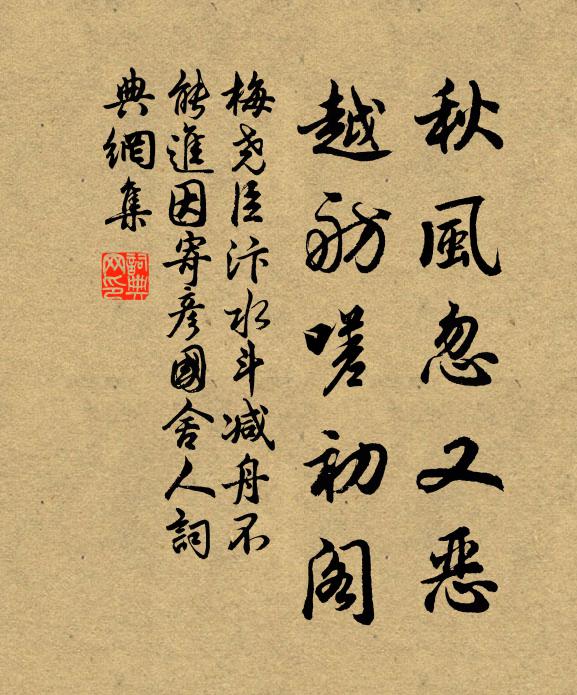 秋風忽又惡
越舫嗟初閣
梅堯臣汴水斗減舟不
能進因寄彥國舍人詞
典網集
詞典
网印